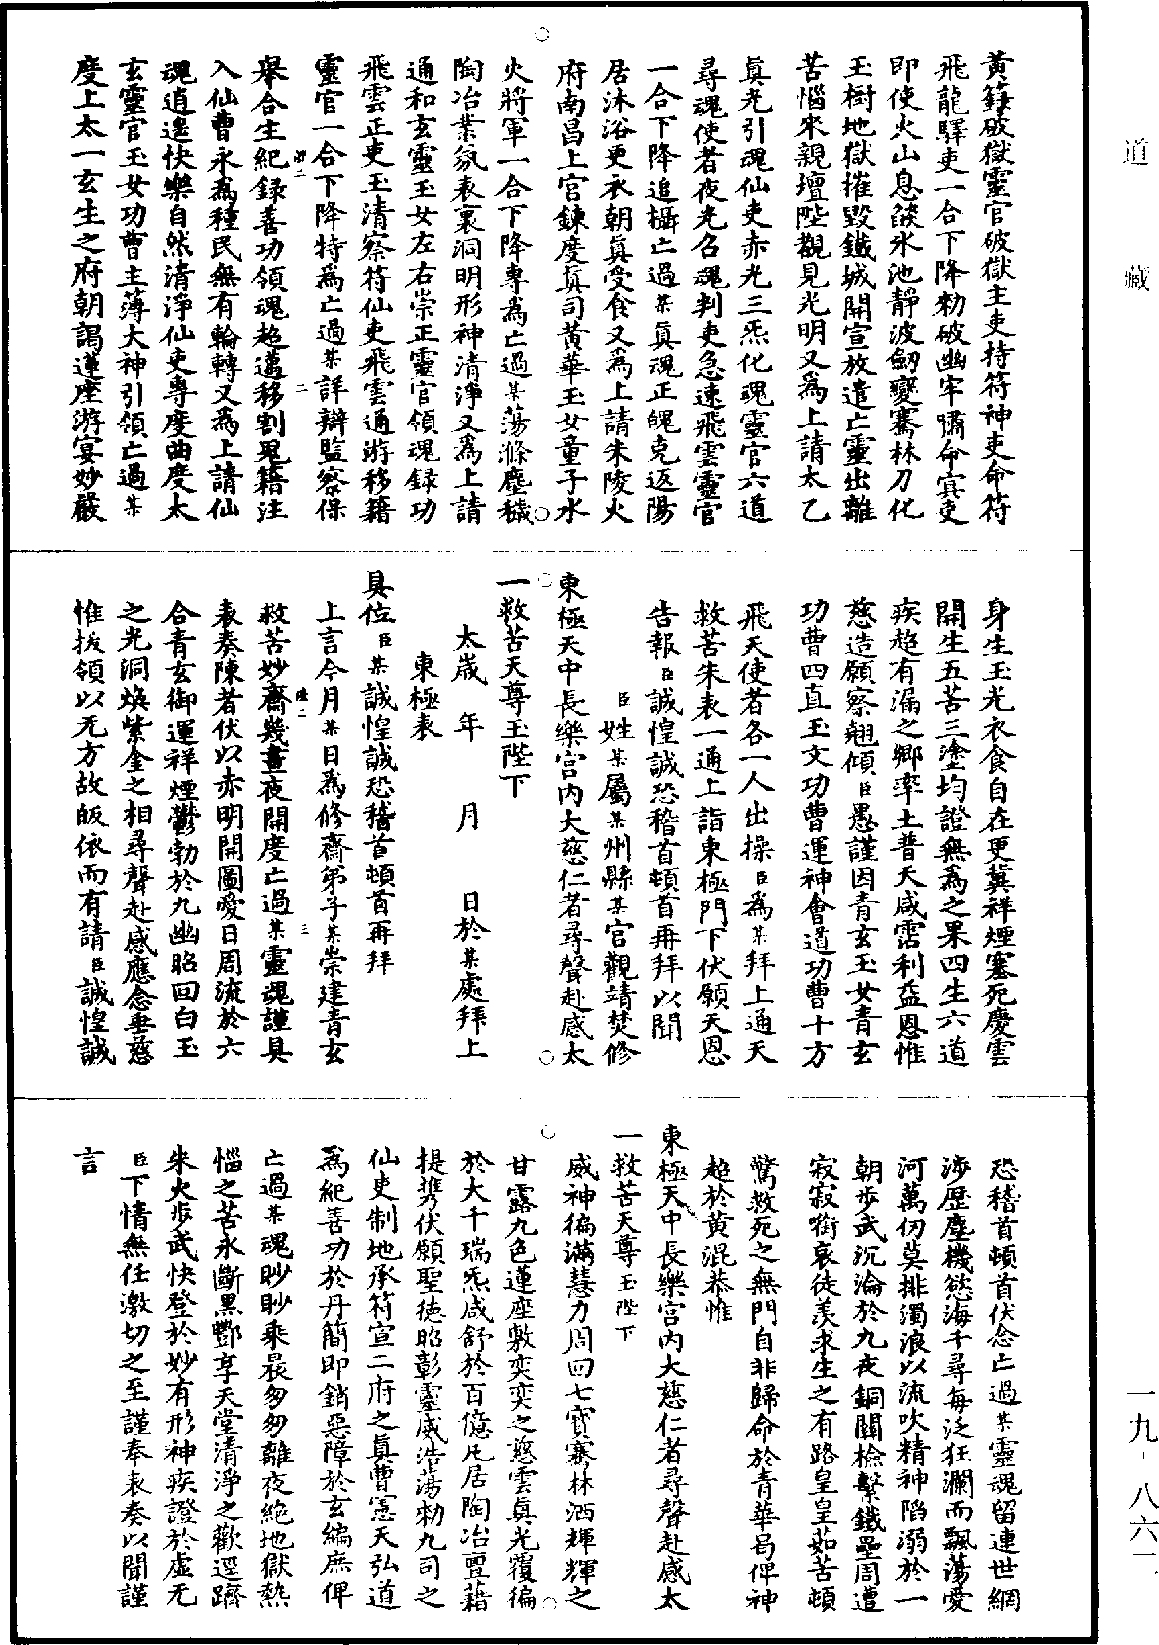 黃籙破獄靈官破獄主吏持符神吏命符
飛龍驛吏一合下降勑破幽牢嘯命冥吏
即使火山息燄氷池靜波劒變騫林刀化
玉樹地獄摧毀鐵城開宣放遣亡靈出離
苦惱來親壇陛觀見光明又爲上請太乙
眞光引魂仙吏赤光三炁化魂靈官六道
尋魂使者夜光召魂判吏急速飛雲靈官
一合下降追攝亡過某眞魂正魄克返陽
居沐浴更衣朝眞受食又爲上請朱陵火
府南昌上宮鍊度眞司黃華玉女童子水
火將軍一合下降專爲亡過某蕩滌塵穢
陶冶業氛表裏洞明形神清淨又爲上請
通和玄靈玉女左右崇正靈官領魂錄功
飛雲正吏玉清察符仙吏飛雲通游移籍
靈官一合下降特爲亡過某詳辯監察保
舉合生紀錄善功領魂超邁移割冤籍注
入仙曹永爲種民無有輪轉又爲上請仙
魂逍遙快樂自然清淨仙吏專度曲度太
玄靈官玉女功曹主薄大神引領亡過某
度上太一玄生之府朝謁蓮座游宴妙嚴
身生玉光衣食自在更冀祥煙塞死慶雲
開生五苦三塗均證無爲之果四生六道
疾超有漏之鄉率土普天咸霑利益恩惟
慈造願察翹傾臣愚謹因青玄玉女青玄
功曹四直玉文功曹運神會道功曹十方
飛天使者各一人出操臣爲某拜上通天
救苦朱表一通上詣東極門下伏願天恩
告報臣誠惶誠恐稽首頓首再拜以聞
臣姓某屬某州縣某官觀靖焚修
東極天中長樂宮內大慈仁者尋聲赴感太
一救苦天尊玉陛下
太歲 年 月 日於某處拜上
東極表
具位臣某誠惶誠恐稽首頓首再拜
上言今月某日爲修齋弟子某崇建青玄
救苦妙齋幾晝夜開度亡過某靈魂謹具
表奏陳者伏以赤明開圖愛日周流於六
合青玄御運祥煙鬱勃於九幽昭回白玉
之光洞煥紫金之相尋聲赴感應念垂慈
惟拔領以无方故皈依而有請臣誠惶誠
恐稽首頓首伏念亡過某靈魂留連世網
渉歷塵機慾海千尋每泛狂瀾而飄蕩愛
河萬仞莫排濁浪以流吹精神陷溺於一
朝步武沉淪於九夜銅關檢繫鐵壘周遭
寂寂銜哀徒羡求生之有路皇皇茹苦頓
驚救死之無門自非歸命於青華曷俾神
超於黃混恭惟
東極天中長樂宮內大慈仁者尋聲赴感太
一救苦天尊玉陛下
威神徧滿慧力周回七寶騫林洒輝輝之
甘露九色蓮座敷奕奕之慈雲眞光覆徧
於大千瑞炁咸舒於百億凡居陶冶亶藉
提携伏願聖德昭彰靈威浩蕩勑九司之
仙吏制地承符宣二府之眞曹憲天弘道
爲紀善功於丹簡即銷惡障於玄編庶俾
亡過某魂眇眇乘晨匆匆離夜絶地獄熱
惱之苦永斷黑酆享天堂清淨之歡逕躋
朱火步武快登於妙有形神疾證於虛无
臣下情無任激切之至謹奉表奏以聞謹
言
道藏
一九-八六一